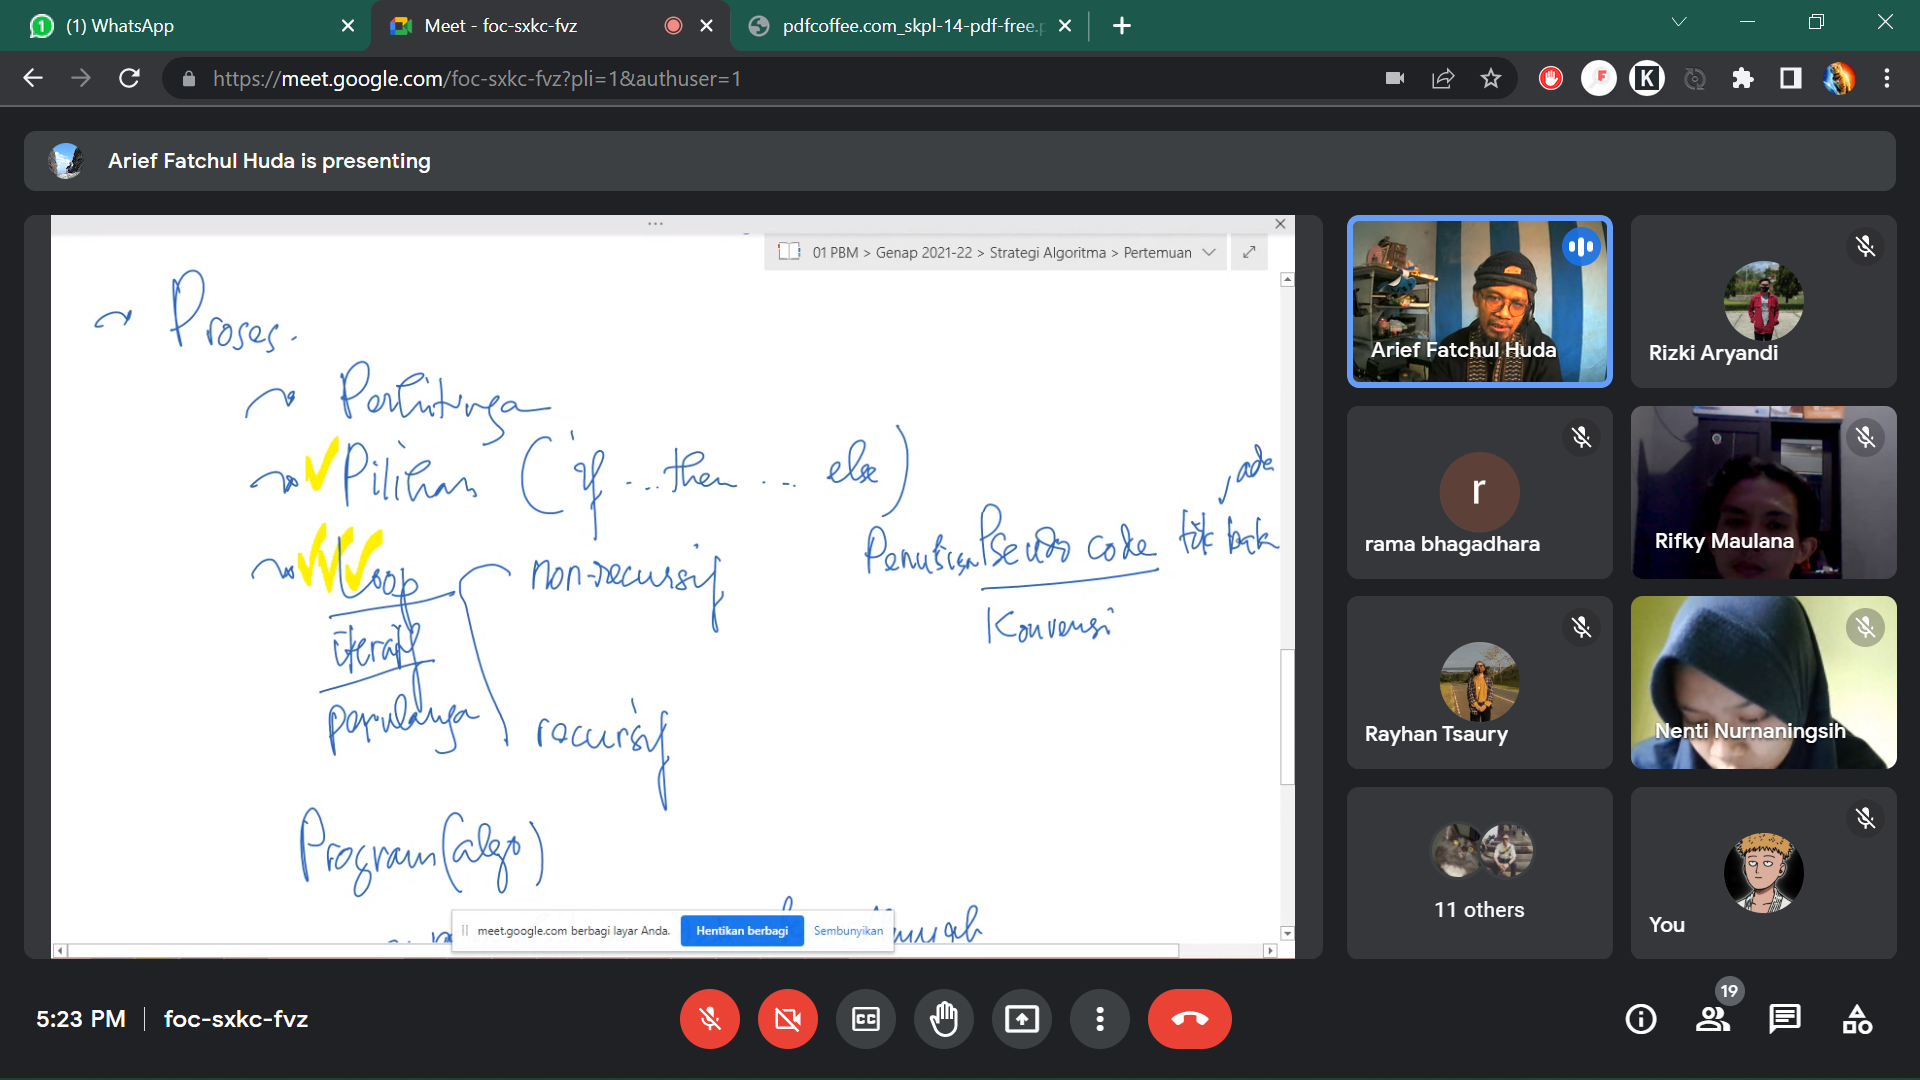 (1) WhatsApp
Meet - foc-sxkc-fvz
pdfcoffee.com_skpl-14-pdf-free.p
https://meet.google.com/foc-sxkc-fvz?pli=1&authuser=1
Arief Fatchul Huda is presenting
01 PBM > Genap 2021-22 > Strategi Algoritma > Pertemuan
Proses.
Perhitunga
Pilihan (if ... then ... else)
ada
Penulisan Pseudo code
Loop
non-recursif
Konvensi
iteratif
perulanga
recursif
Program (algo)
meet.google.com berbagi layar Anda.
Hentikan berbagi
Sembunyikan
Arief Fatchul Huda
Rizki Aryandi
r
rama bhagadhara
Rifky Maulana
Rayhan Tsaury
Nenti Nurnaningsih
11 others
You
5:23 PM
foc-sxkc-fvz
19